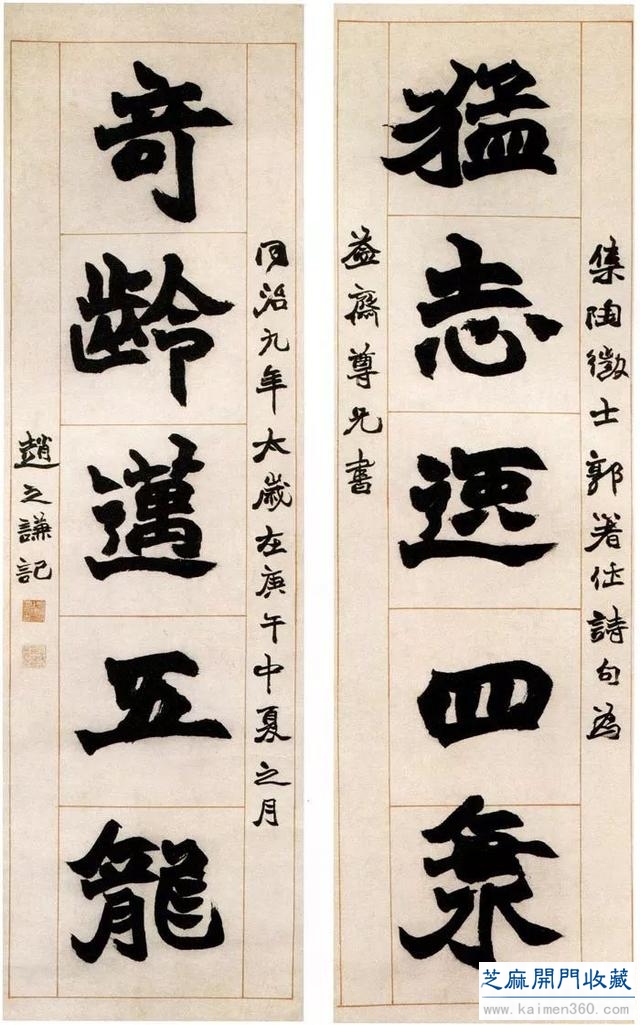 集陶徵士郭著作詩句為
猛志逸四海
益齋尊兄書
同治九年太歲在庚午中夏之月
奇齡邁五龍
趙之謙記
芝麻開門收藏
www.kaimen360.com